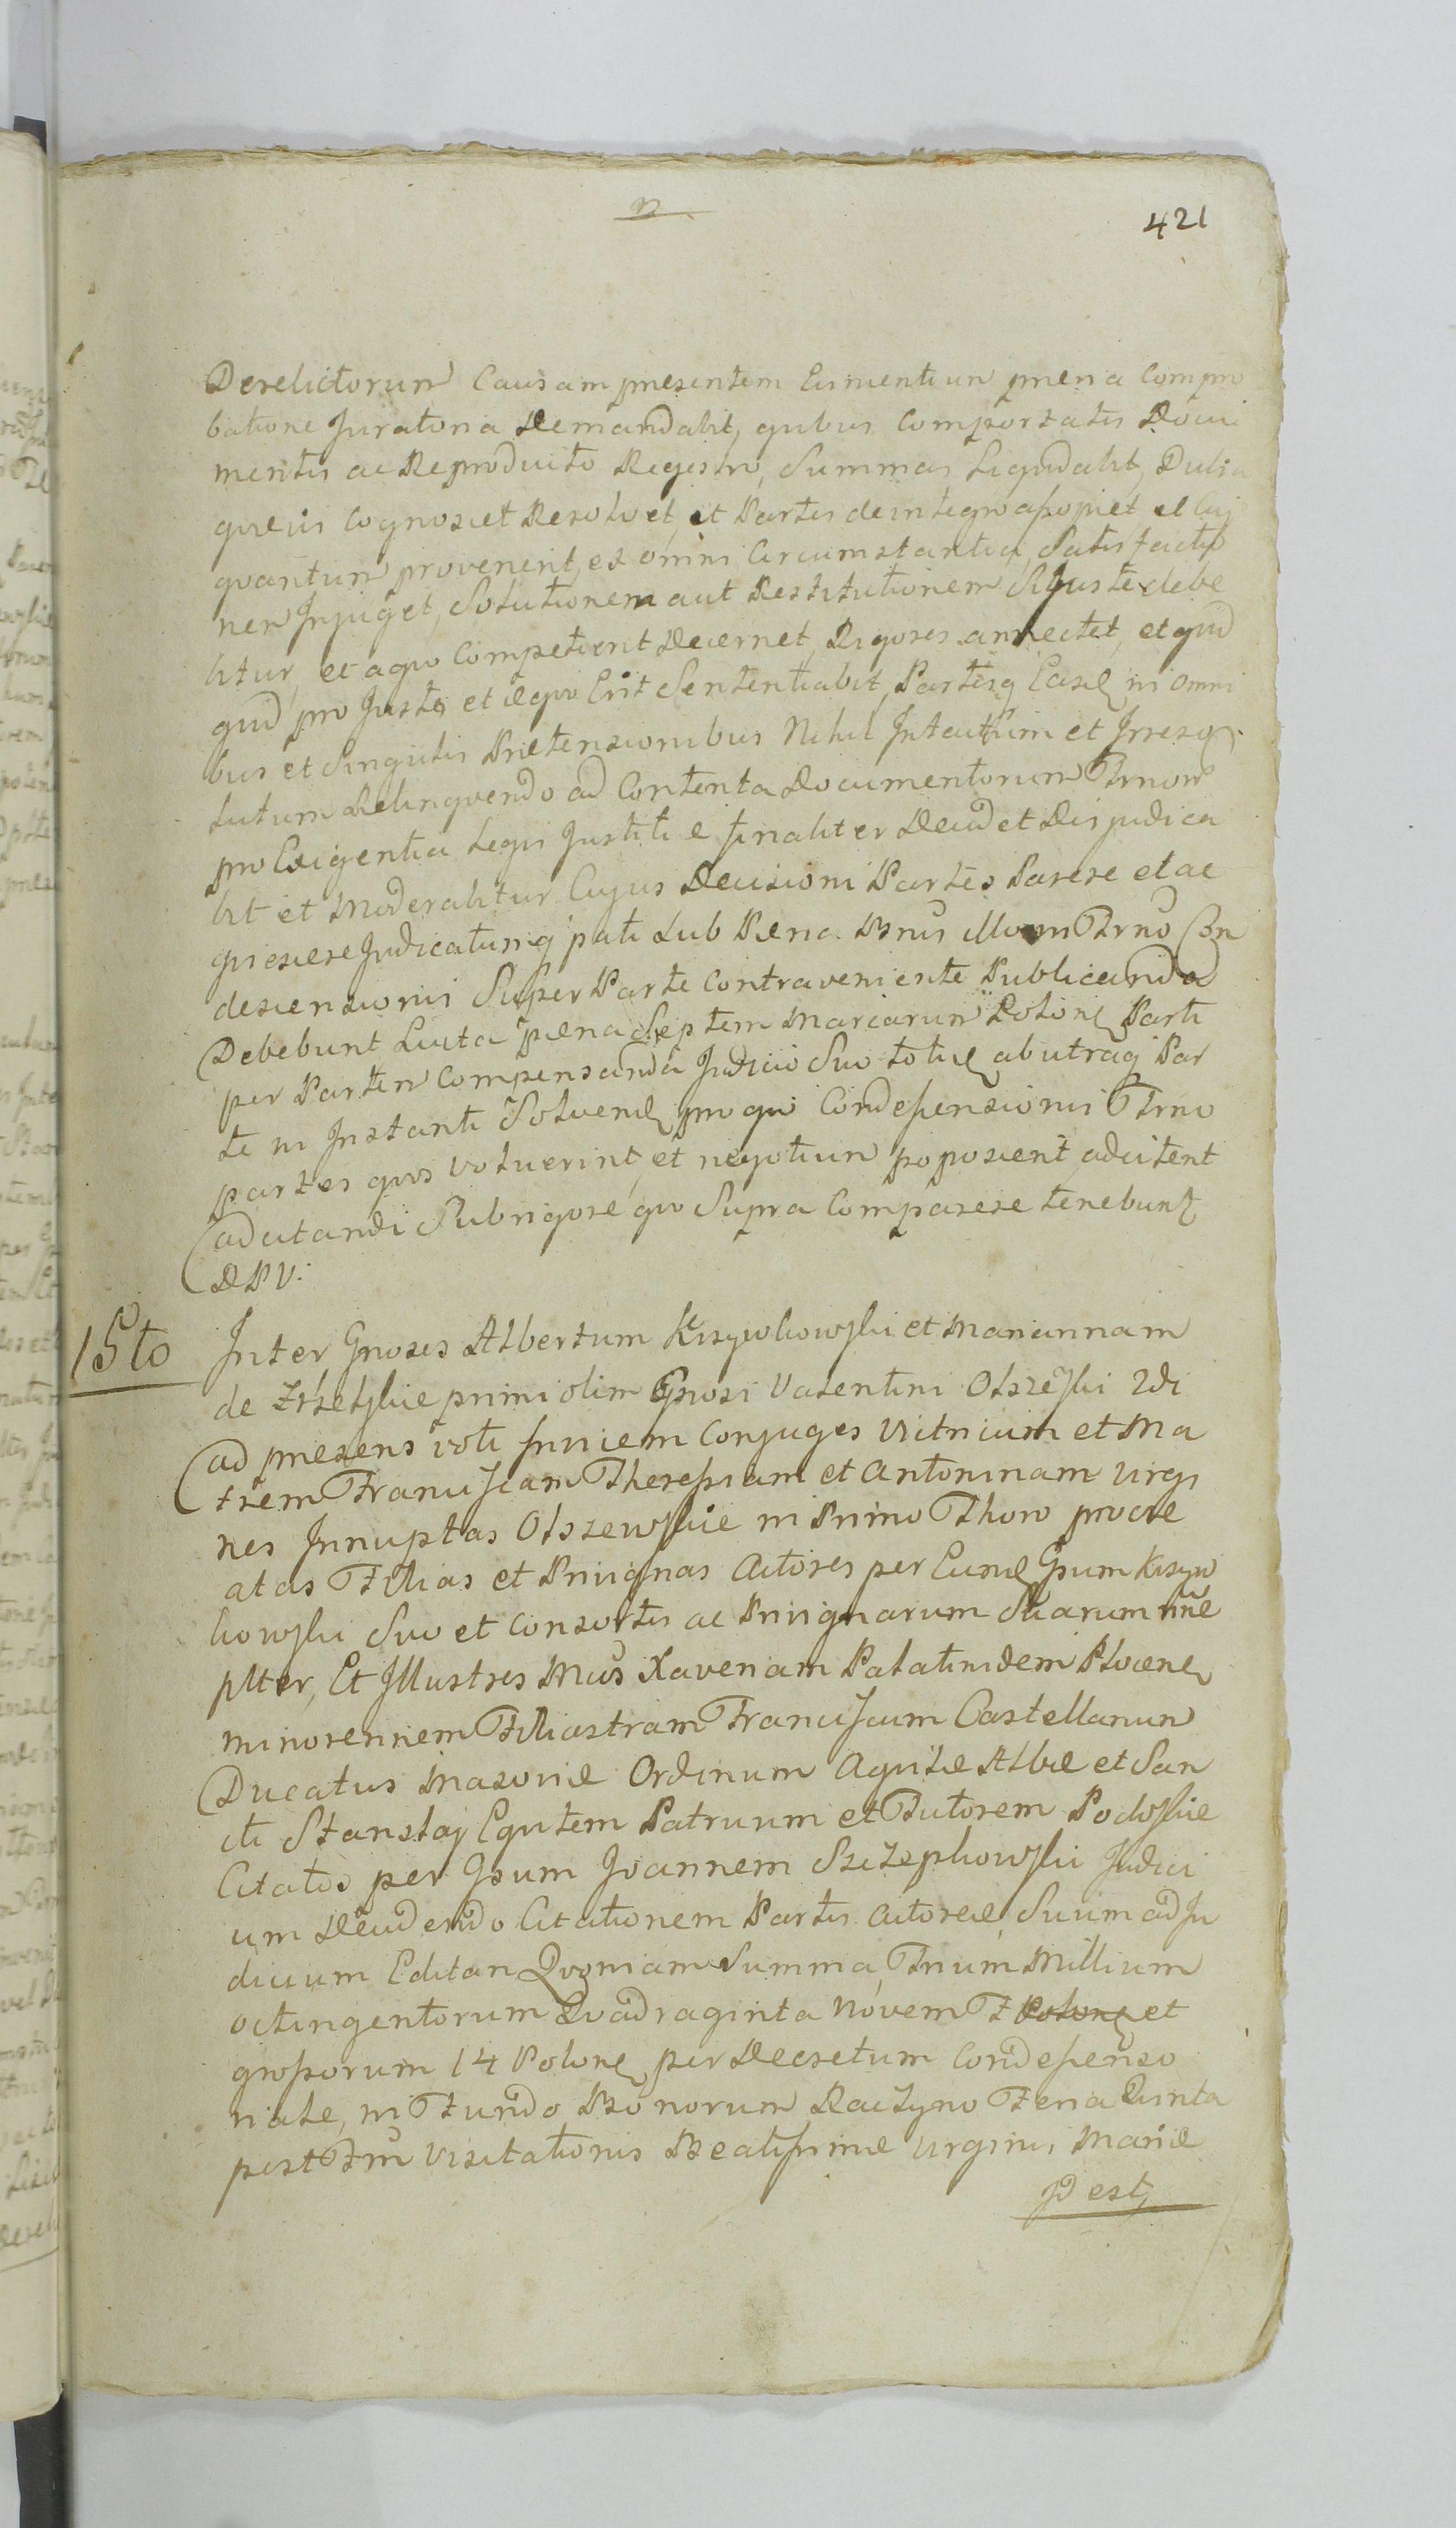 n
421
Derelictorum Causam presentem
batione Juratoria Demandabit, quibus Comportatis Docu
mentis ac Reproducto Regestro, Summas Liquidabit, Dubia
que iis Cognoscet Resolvet, et Partes de integro
quantum provenerit, ex omni Circumstantia, Satisfactio
nem Injunget, Solutionem aut Restitutionem si juste debe
bitur, et a quo Competierit Decernet, Rigores annectet, et quid
quid pro Justo et æquo Erit Sententiabit, Partesq in omni
bus et Singulis Prætensionibus Nihil Intactum et Irreso
lutum Relinquendo ad Contenta Documentorum
pro Exigentia Legis Justitiæ finaliter Decidet Disjudica
bit et Moderabitur Cujus Decisioni Partes Parere et ac
quiescere Judicatumq pati Sub Pœna
descensionis Super Parte Contraveniente Publicanda
Debebunt Luita pæna Septem Marcarum Polon Parti
per Partem Compensanda Judicio Suo totid ab utraq Par
te in Instanti Solvend pro quo Condescensionis Trno
partes quos voluerint, et negotium poposcerit adcitent
adcitandi Sub rigore quo Supra Comparere tenebunt
DPV:
15to Inter Gnosos Albertum Krzywkowski et Mariannam
de primi olim Gnosi Valentini Olszewski 2di
ad præsens voti Invicem Conjuges Vitricum et Ma
trem Franciscam Theressiam et Antoninam Virgi
nes Innuptas Olszewskie in Primo Thoro procre
atas Filias et Privignas Actores per Eund Gsum Krzyw
kowski Suo et Consortis ac Privignarum Suarum nne
plter, Et Illustres Mcos Xaveriam Palatinidem Plocen
minorennem Filiastram Franciscum Castellanum
Ducatus Masoviæ Ordinum Aquilæ Albæ et San
cti Stanslai Equitem Patruum et Tutorem Podoskie
Citatos per Gsum Joannem Szczepkowski Judici
um Decidendo Citationem Partis Actoreæ Suum ad Ju
dicium Editan Quoniam Summa Trium Millium
octingentorum Quadraginta Novem F Polon et
grossorum 14 Polon per Decretum Condescenso
riale, in Fundo Bonorum Raczyno Feria Quinta
post Ftm Visitationis Beatissimæ Virginis Mariæ
Id est,